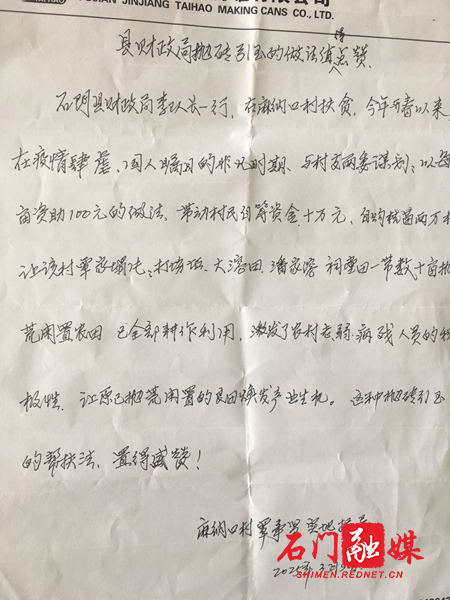 FUJIAN JINJIANG TAIHAO MAKING CANS CO., LTD.
县财政局抛砖引玉的做法值点赞
石门县财政局李队长一行,在麻纳口村扶贫,今年开春以来,
在疫情肆虐、国人瞩目的非凡时期、与村支两委谋划、以每
亩资助100元的做法、带动村民自筹资金十万元、自购秧苗两万
让该村覃家塌、大湾田、潘家湾、祠堂田一带数十亩抛
荒闲置农田已全部耕作利用,激发了农村老弱病残人员的积
极性,让原已抛荒闲置的良田焕发产业生机。这种抛砖引玉
的帮扶法、置得盛赞!
麻纳口村覃事 实地
石门融媒
SHIMEN.REDNET.CN